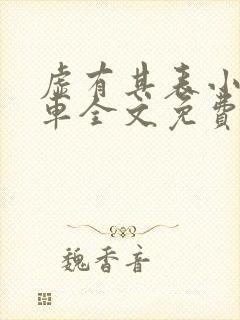 虚有其表小
車全文免費
魏香音